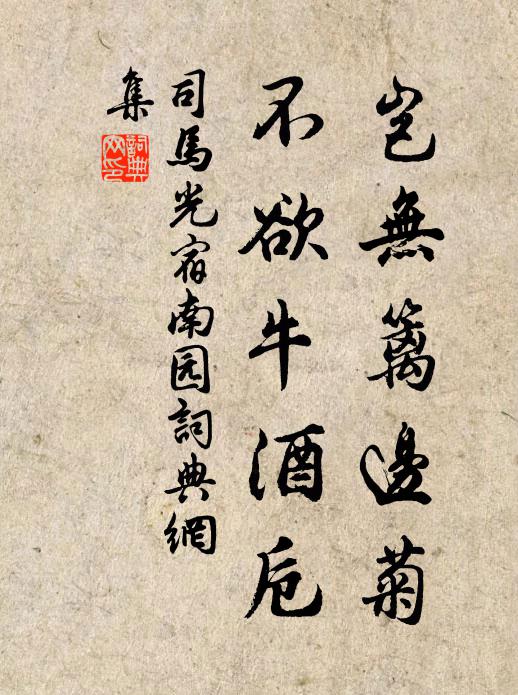 岂無籬邊菊
不欲牛酒卮
司馬光宿南园詞典網
集
詞典网印